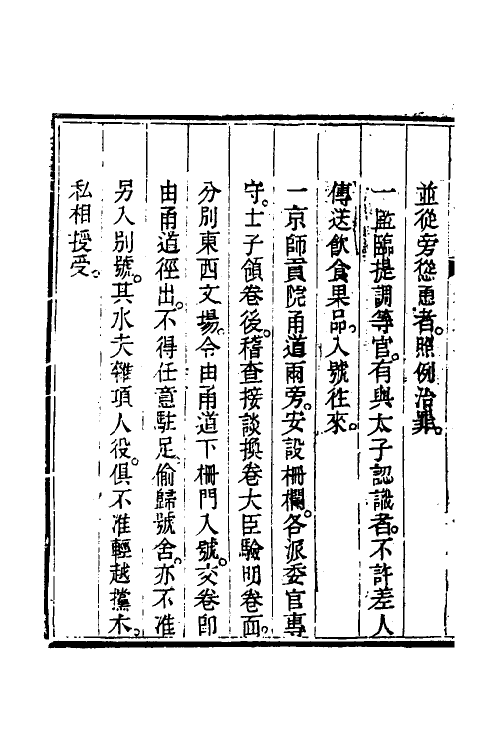 並從旁慫恿者。照例治罪。
一監臨提調等官。有與太子認識者。不許差人
傳送飲食果品。入號往來。
一京師貢院甬道兩旁。安設柵欄。各派委官專
守。士子領卷後。稽查接談換卷大臣驗明卷面。
分別東西文場。令由甬道下柵門入號。交卷卽
由甬道徑出。不得任意駐足。偷歸號舍。亦不准
另入別號。其水夫雜項人役。俱不准輕越攩木。
私相授受。